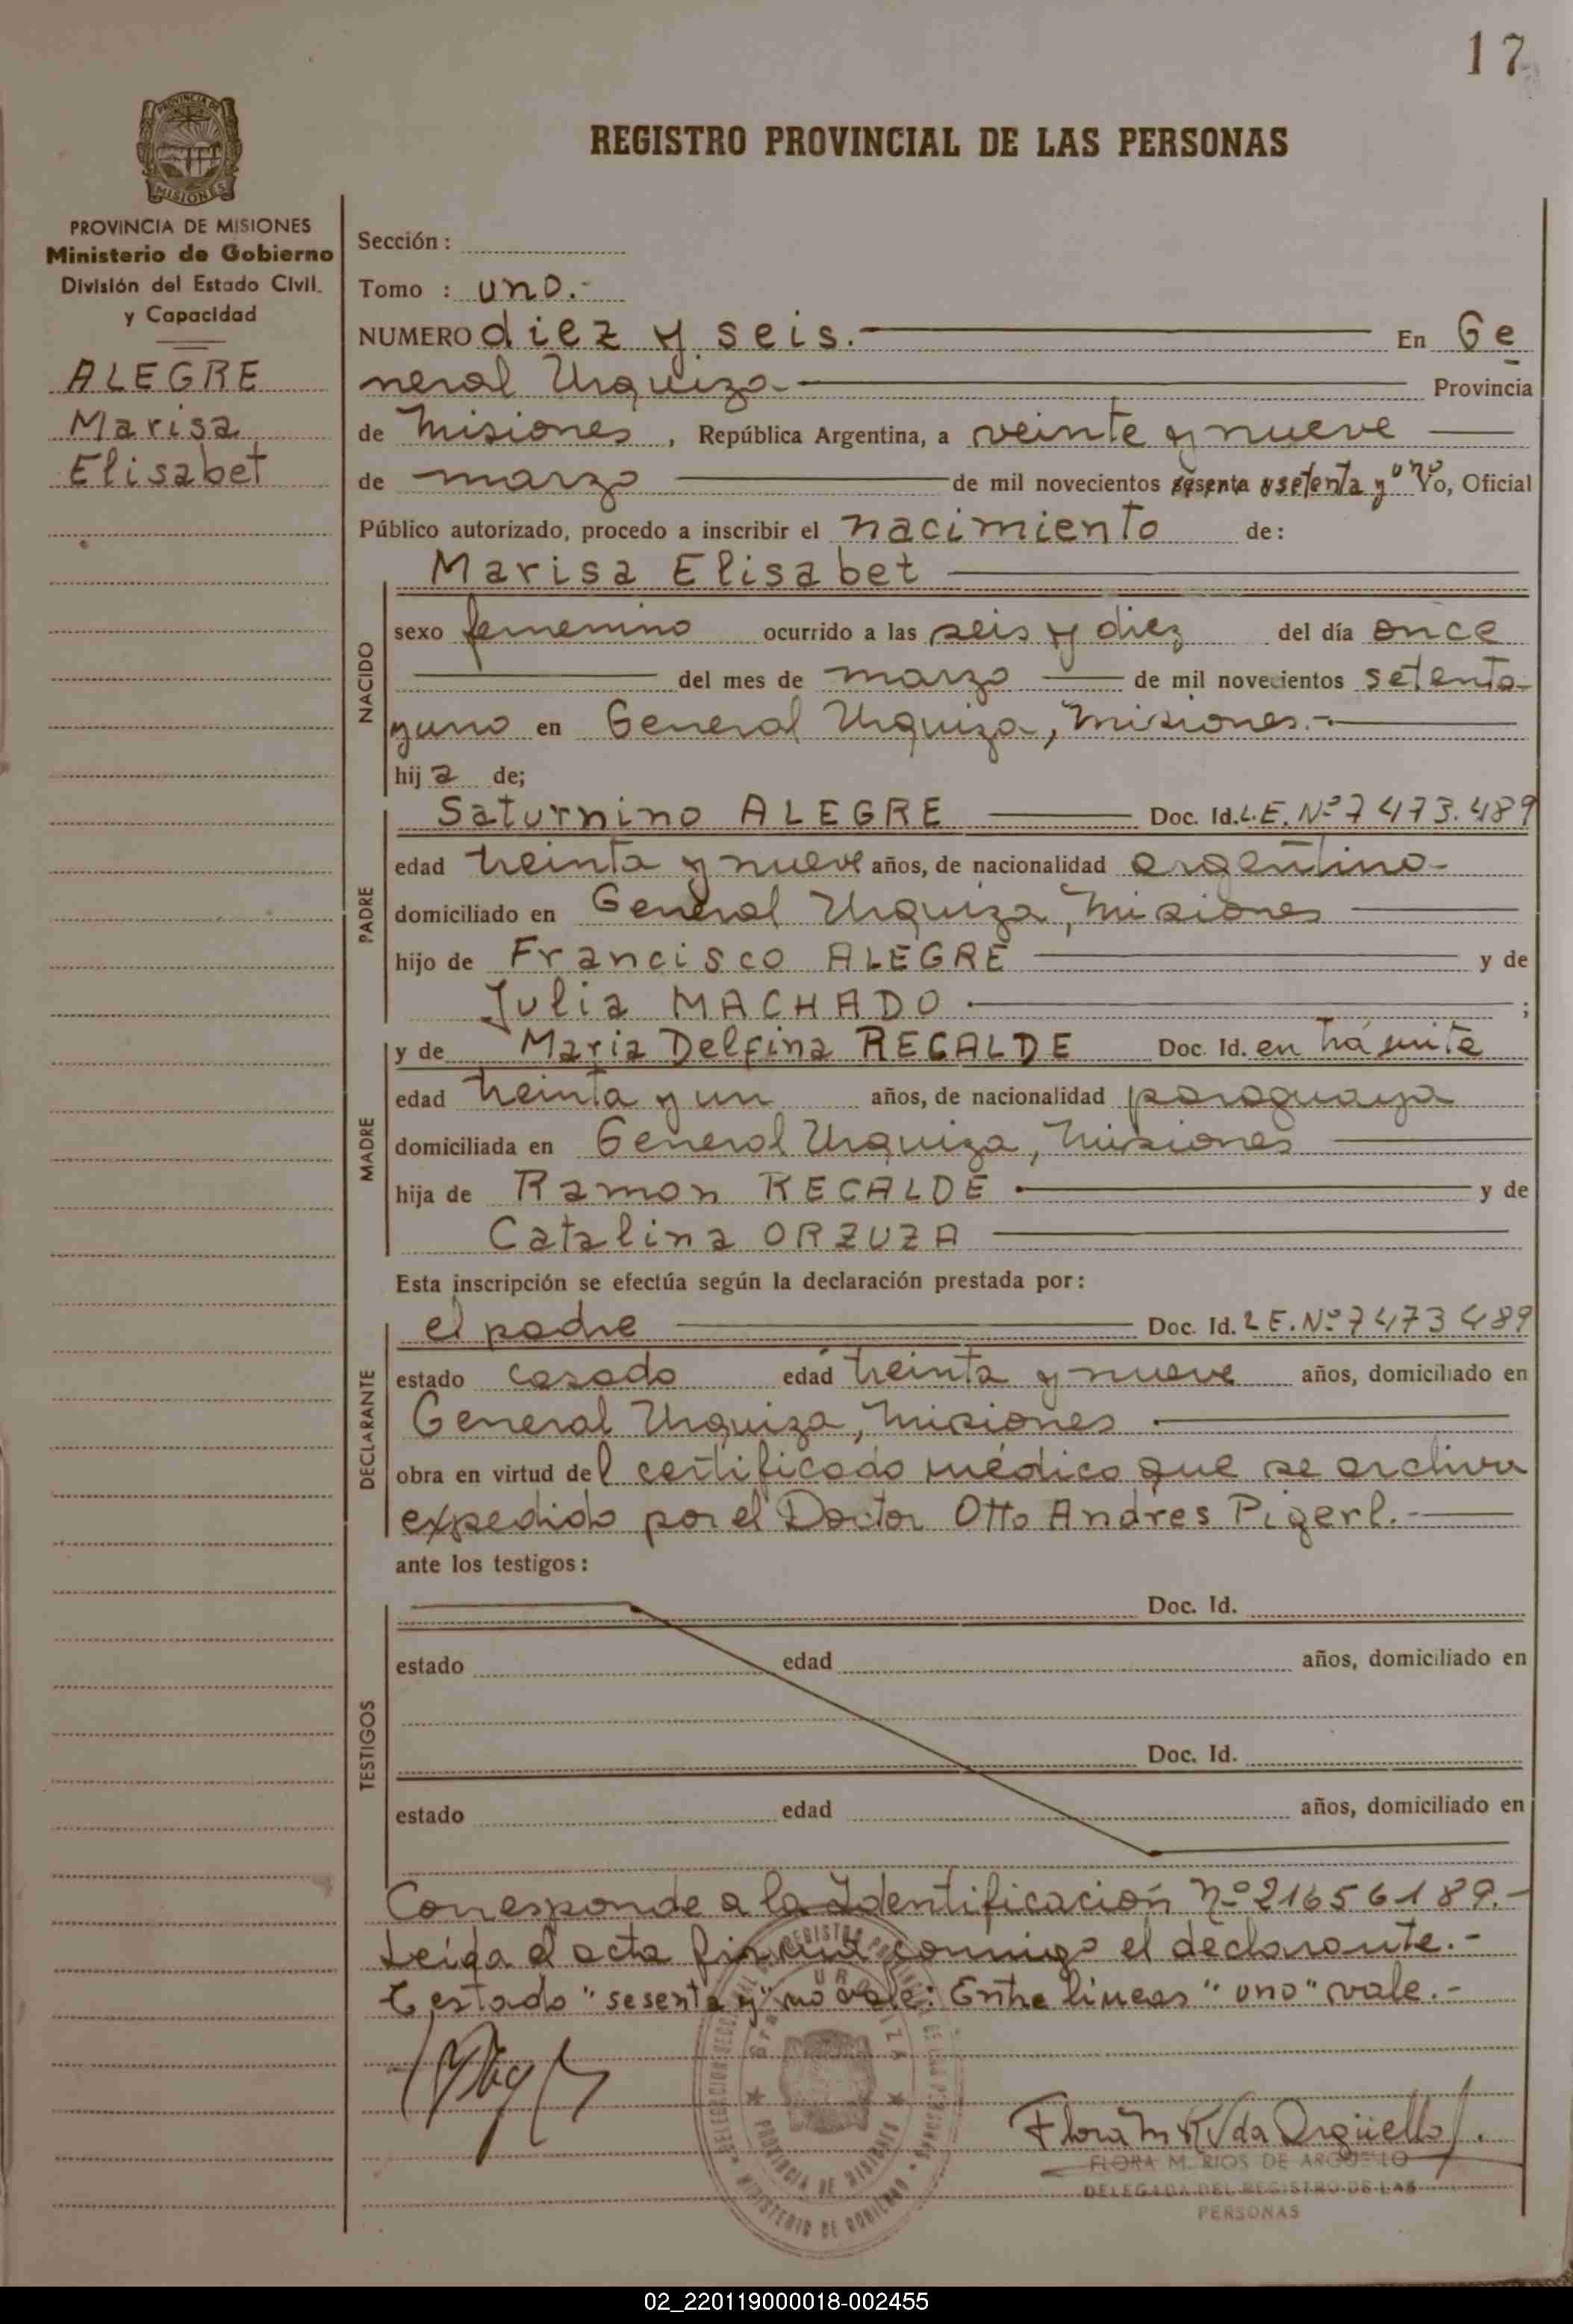 17
REGISTRO PROVINCIAL DE LAS PERSONAS
PROVINCIA DE
MISIONES
PROVINCIA DE MISIONES
Ministerio de Gobierno
División del Estado Civil
y Capacidad
ALEGRE
Marisa
Elisabet
Sección :
Tomo : uno.-
NUMERO diez y seis. En Ge
neral Urquiza Provincia
de Misiones, República Argentina, a veinte y nueve
de marzo de mil novecientos sesenta y setenta y uno Yo, Oficial
Público autorizado, procedo a inscribir el nacimiento de:
NACIDO
Marisa Elisabet
sexo femenino ocurrido a las seis y diez del día once
del mes de marzo de mil novecientos setenta
y uno en General Urquiza, Misiones.-
hij a de;
PADRE
Saturnino ALEGRE Doc. Id. L.E. Nº 7 473.489
edad treinta y nueve años, de nacionalidad argentino-
domiciliado en General Urquiza, Misiones
hijo de Francisco ALEGRE y de
Julia MACHADO ;
MADRE
y de Maria Delfina RECALDE Doc. Id. en trámite
edad treinta y un años, de nacionalidad paraguaya
domiciliada en General Urquiza, Misiones
hija de Ramon RECALDE y de
Catalina ORZUZA
Esta inscripción se efectúa según la declaración prestada por:
DECLARANTE
el padre Doc. Id. L E. Nº 7 473 489
estado casado edad treinta y nueve años, domiciliado en
General Urquiza, Misiones
obra en virtud del certificado médico que se archiva
expedido por el Doctor Otto Andres Pigerl.-
ante los testigos:
TESTIGOS
Doc. Id.
estado edad años, domiciliado en
Doc. Id.
estado edad años, domiciliado en
Corresponde a la Identificación nº 21656189.-
Leída el acta firma conmigo el declarante.-
Testado "sesenta y" no vale: Entre lineas "uno" vale.-
PROVINCIA DE MISIONES
MINISTERIO DE GOBIERNO
Flora M R Vda Argüello
FLORA M. RIOS DE ARGUELLO
DELEGADA DEL REGISTRO DE LAS
PERSONAS
02_220119000018-002455